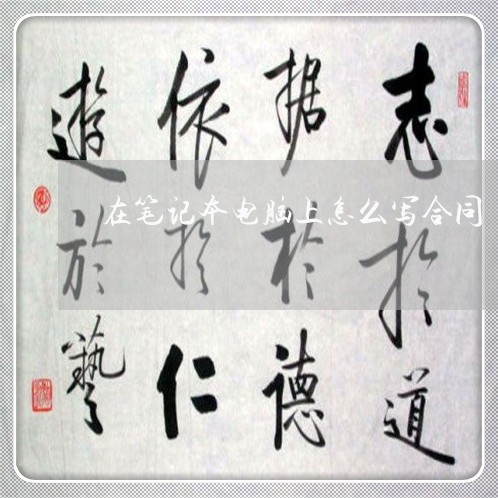 志於道
据於德
依於仁
遊於藝
在笔记本电脑上怎么写合同